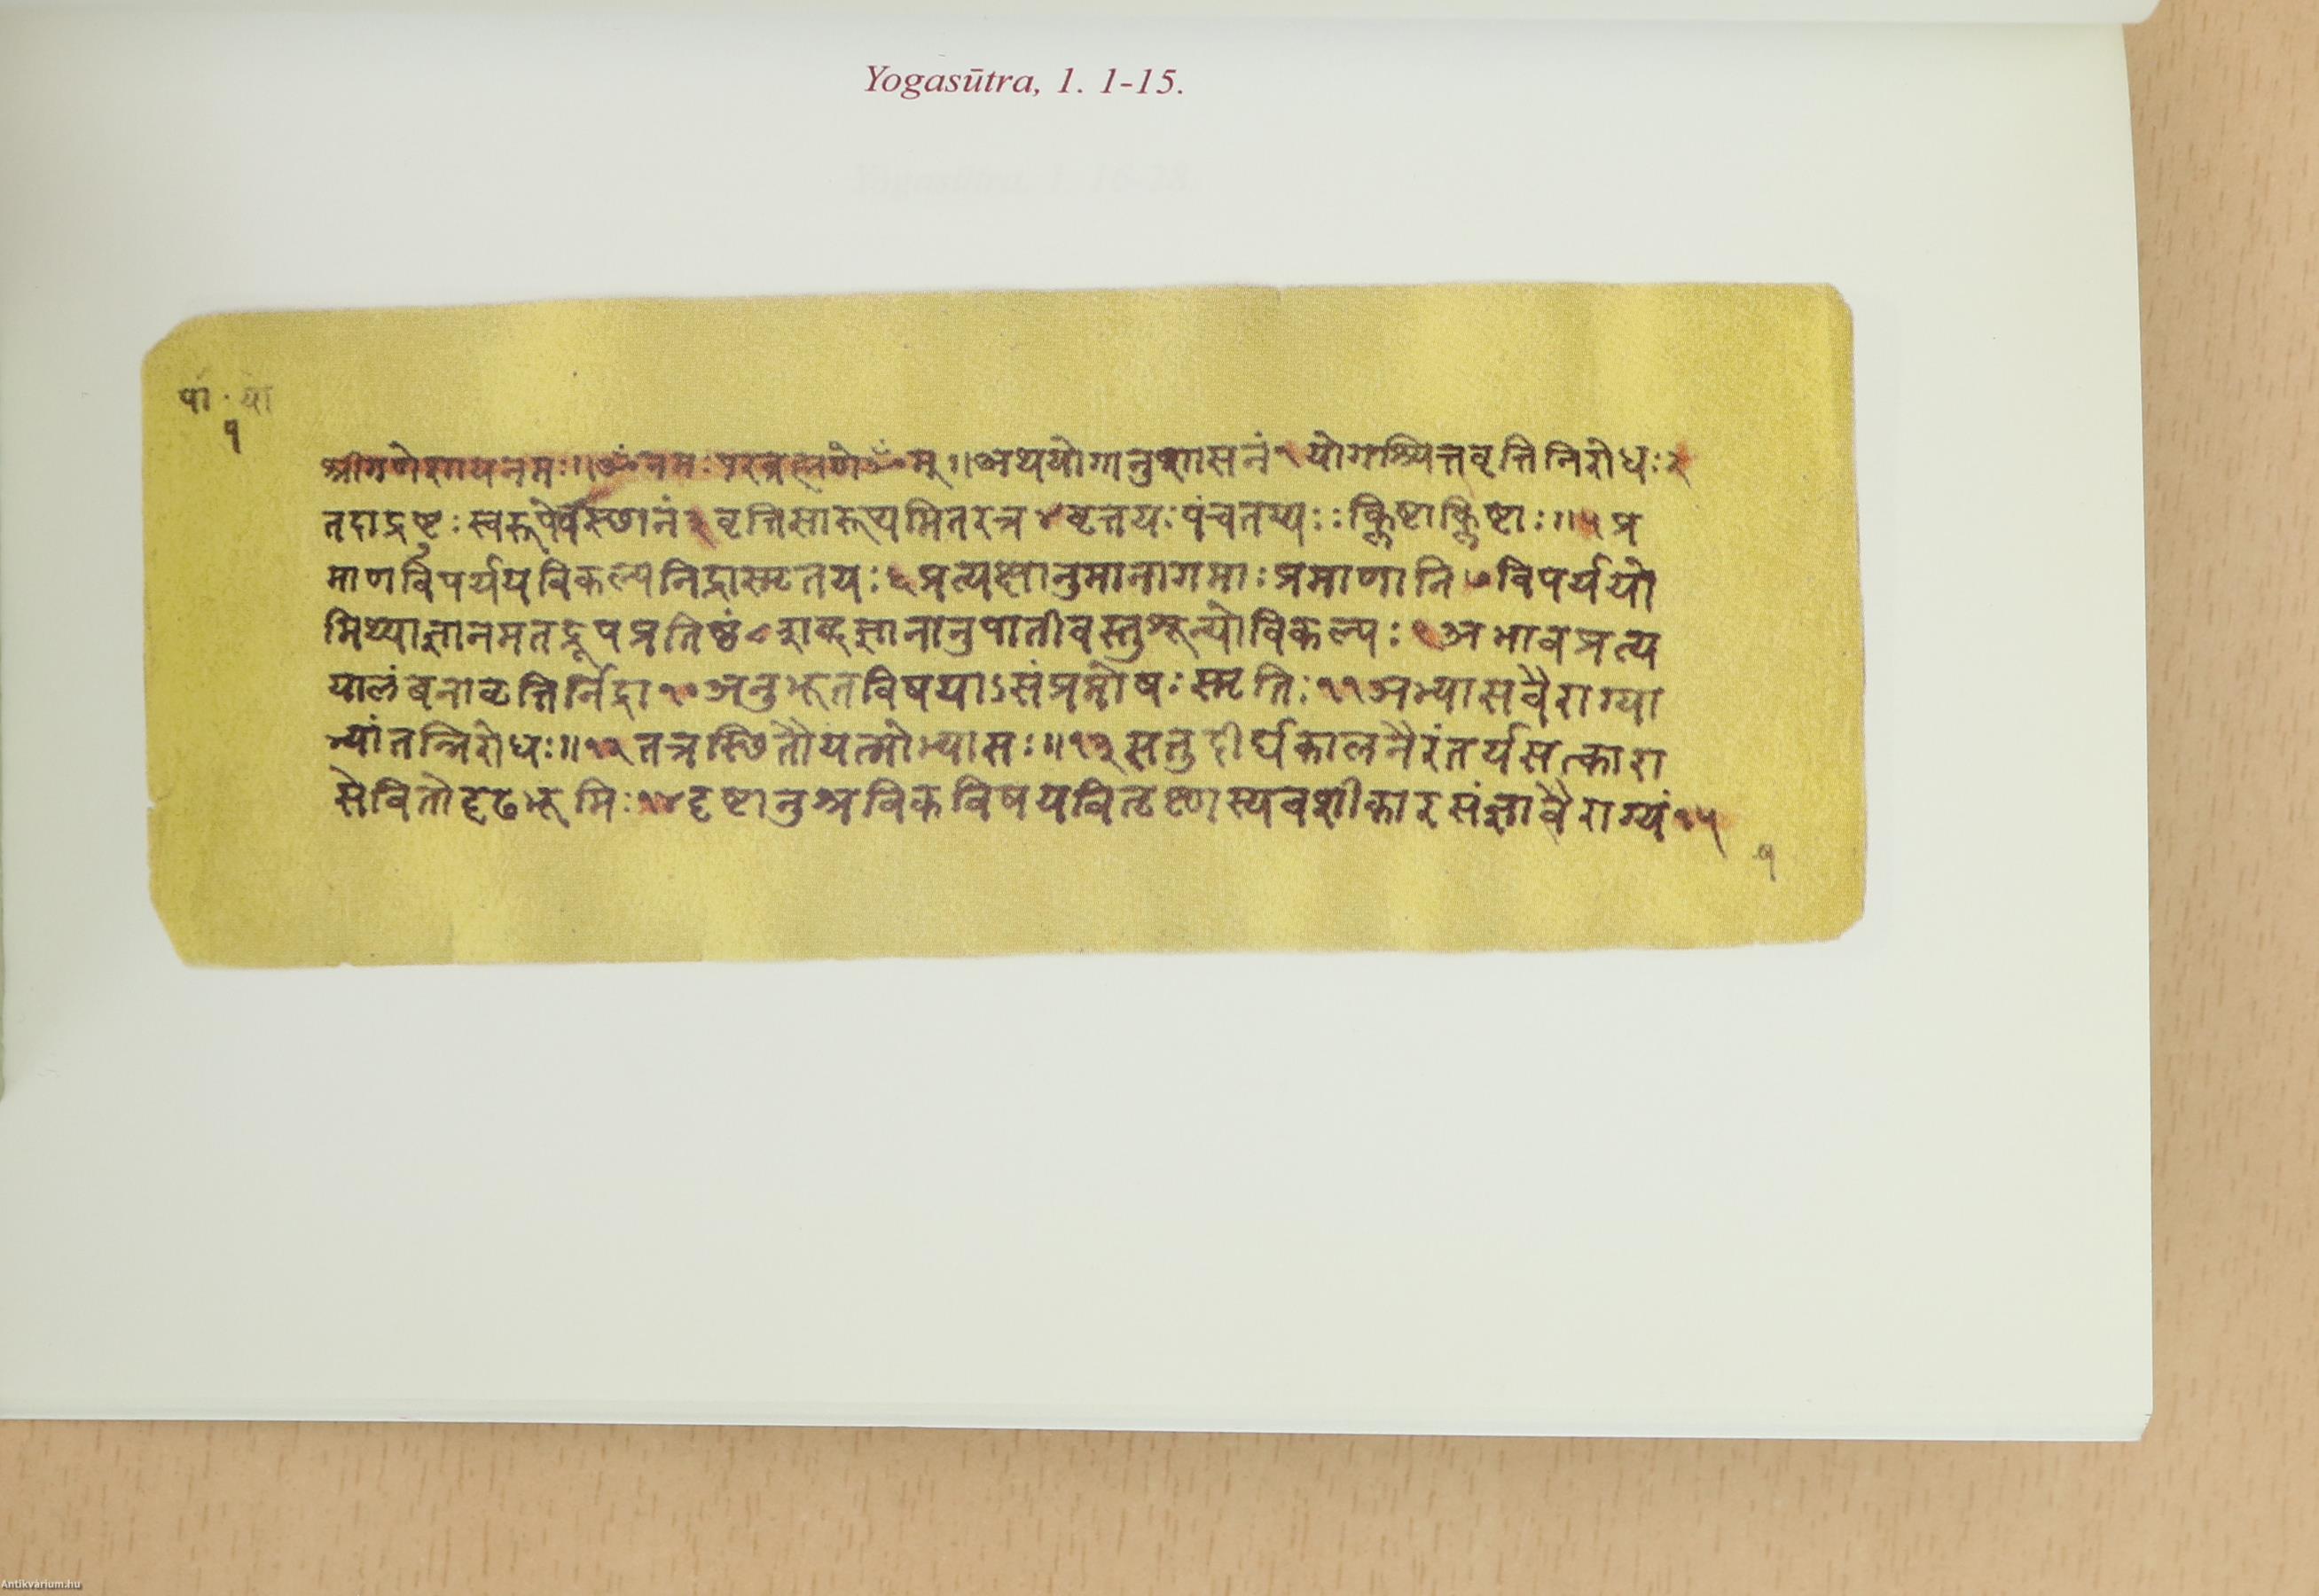 Yogasūtra, 1. 1-15.
पा · यो
१
श्रीगणेशायनमः॥ॐनमः ॐम्॥अथयोगानुशासनं१योगश्चित्तवृत्तिनिरोधः२
तदाद्रष्टः स्वरूपेवस्छानं३वृत्तिसारूप्यमितरत्र४वृत्तयःपंचतय्यःःक्लिष्टाक्लिष्टाः॥५प्र
माणविपर्ययविकल्पनिद्रास्मृतयः६प्रत्यक्षानुमानागमाःप्रमाणानि७विपर्ययो
मिथ्याज्ञानमतद्रूपप्रतिष्ठं८शब्दज्ञानानुपातीवस्तुशून्योविकल्पः९अभावप्रत्य
यालंबनावृत्तिर्निद्रा१०अनुभूतविषयाऽसंप्रमोषःस्मृतिः११अभ्यासवैराग्या
भ्यांतन्निरोधः॥१२तत्रस्छितौयत्नोभ्यासः॥१३सतुदीर्घकालनैरंतर्यसत्कारा
सेवितोदृढभूमिः१४दृष्टानुश्रविकविषयवितृष्णस्यवशीकारसंज्ञावैराग्यं१५
१
Antikvárium.hu